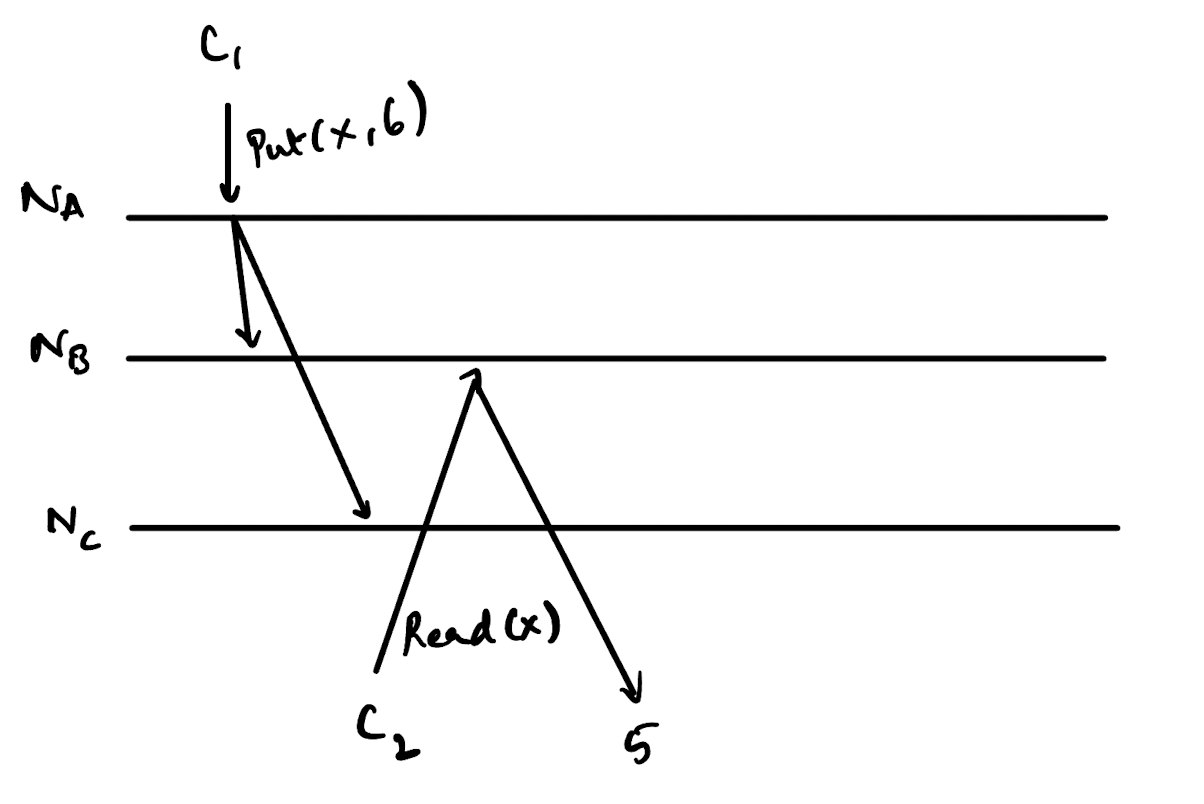 C₁
Put(x,6)
NA
NB
NC
Read(x)
C₂
5